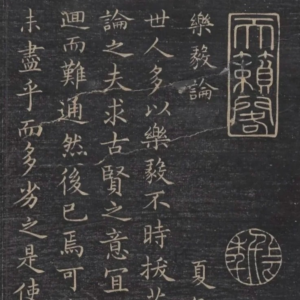 天籟閣
樂毅論
夏
世人多以樂毅不時拔
論之夫求古賢之意宜
迴而難通然後已焉可
未盡乎而多劣之是使